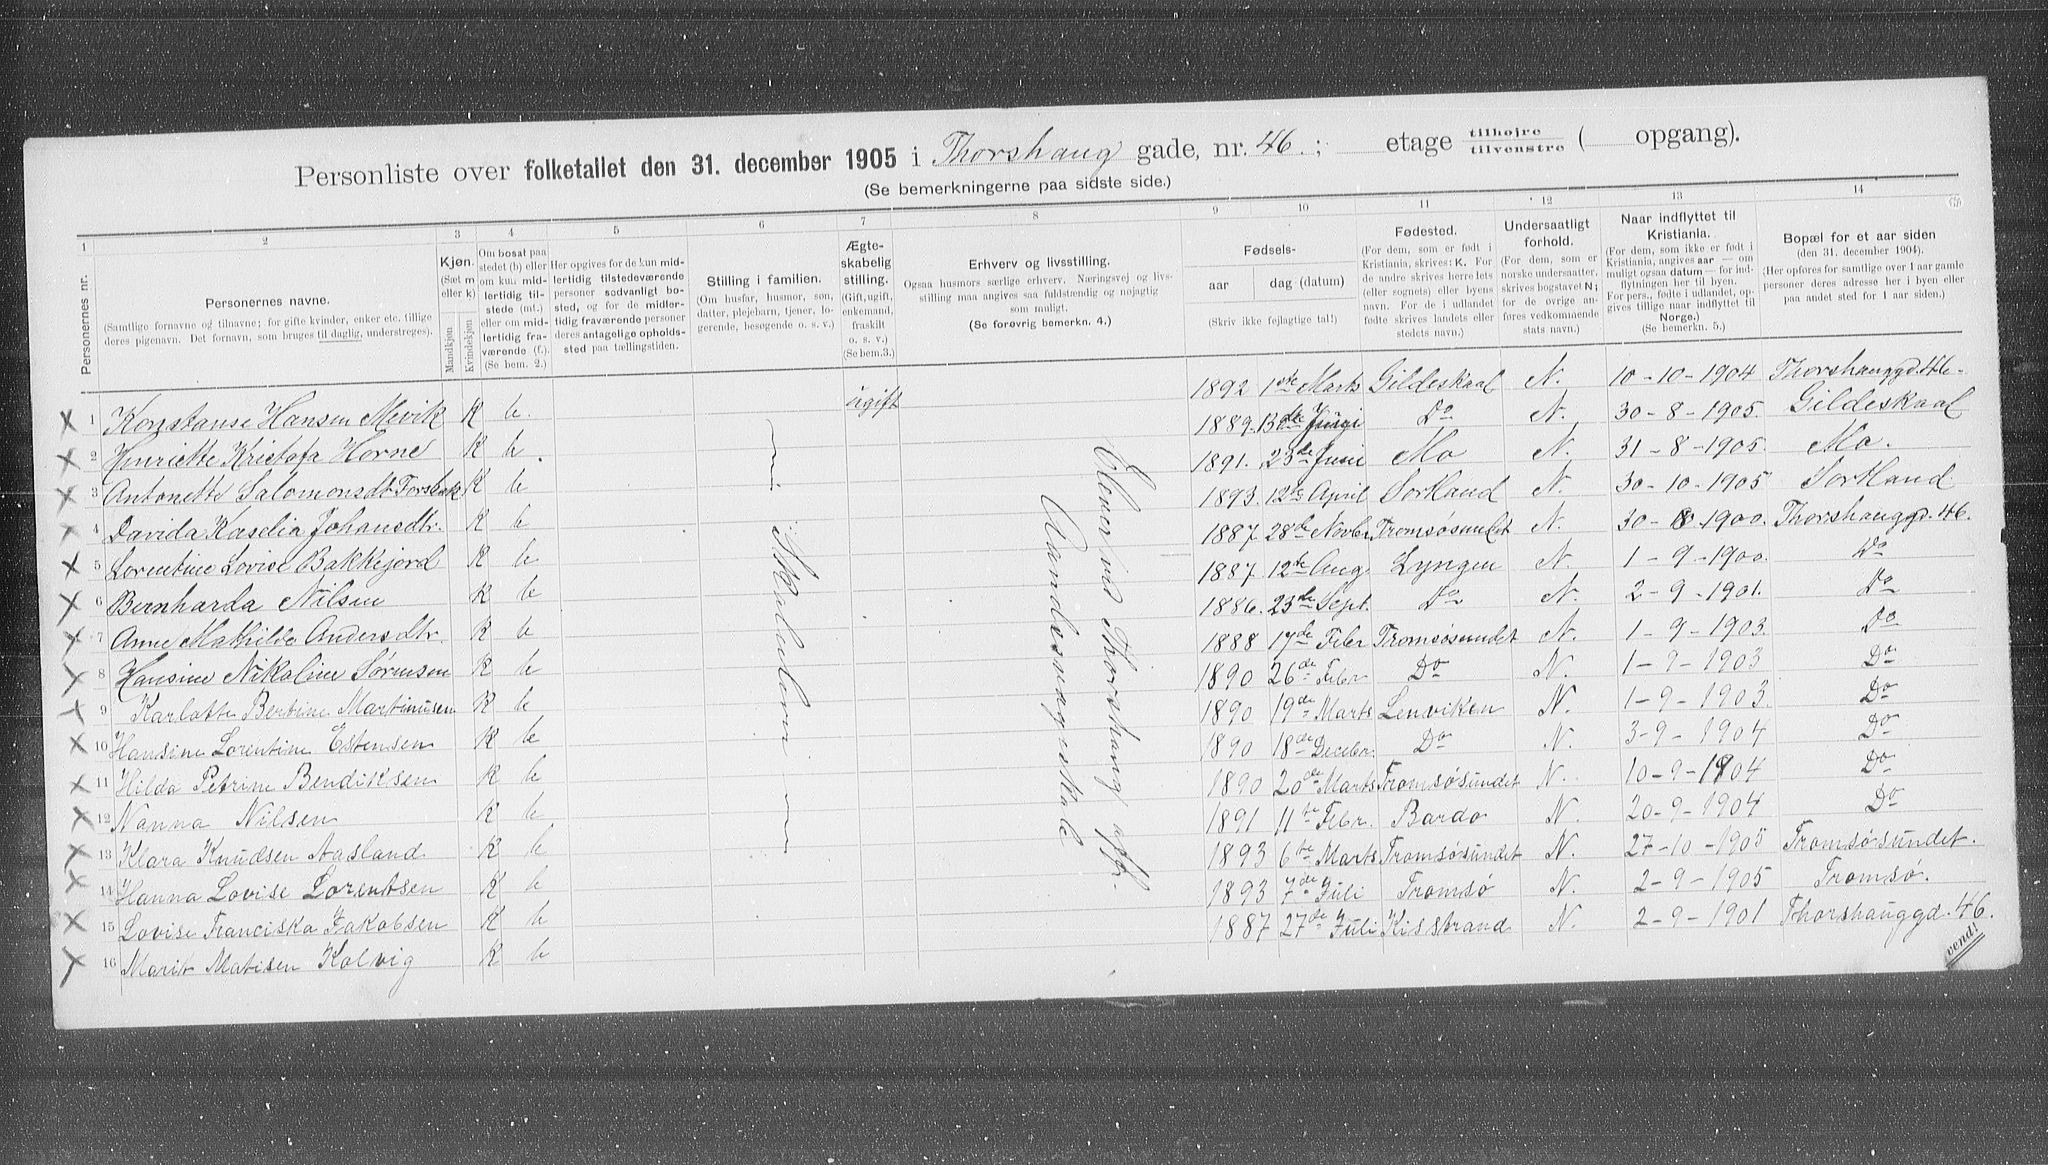 Personliste over folketallet den 31. december 1905 i Thorshaug gade, nr. 46.; etage tilhøjre tilvenstre ( opgang).
(Se bemerkningerne paa sidste side.)
1 2 3 4 5 6 7 8 9 10 11 12 13 14
Personernes nr.
Personernes navne.
(Samtlige fornavne og tilnavne; for gifte kvinder, enker etc. tillige deres pigenavn. Det fornavn, som bruges til daglig, understreges).
Kjøn.
(Sæt m eller k)
Mandkjøn
Kvindekjøn
Om bosat paa stedet (b) eller om kun midlertidig tilstede (mt.) eller om midlertidig fraværende (f.) (Se bem. 2.)
Her opgives for de kun midlertidig tilstedeværende personer sodvanligt bosted, og for de midlertidig fraværende personer deres antagelige opholdssted paa tællingstiden.
Stilling i familien.
(Om husfar, husmor, søn, datter, plejebarn, tjener, logerende, besøgende o. s. v.)
Ægteskabelig stilling.
(Gift, ugift, enkemand, fraskilt o. s. v.)
(Se bem.3.)
Erhverv og livsstilling.
Ogsaa husmors særlige erhverv. Næringsvej og livsstilling maa angives saa fuldstændig og nøjagtig som muligt.
(Se forøvrig bemerkn. 4.)
Fødsels-
aar dag (datum)
(Skriv ikke fejlagtige tal!)
Fødested.
(For dem, som er født i Kristiania, skrives: K. For de andre skrives herredets (eller sognets) eller byens navn. For de i udlandet fødte skrives landets eller stedets navn.)
Undersaatligt forhold.
(For dem, som er norske undersaatter, skrives bogstavet N; for de øvrige anføres vedkommende stats navn.)
Naar indflyttet til Kristiania.
(For dem, som ikke er født i Kristiania, angives aar — om muligt ogsaa datum — for indflytningen her til byen. For pers., fødte i udlandet, opgives tillige naar indflyttet til Norge.)
(Se bemerkn. 5.)
Bopæl for et aar siden
(den 31. december 1904).
(Her opføres for samtlige over 1 aar gamle personer deres adresse her i byen eller paa andet sted for 1 aar siden.)
1 Konstanse Hansen Mevik K b. ugift 1892 1ste Marts Gildeskaal N. 10-10-1904 Thorshauggd 46
2 Henriette Kristofa Horne K b. 1889. 13de N. 30-8-1905. Gildeskaal
3 Antonette Salomonsdt K b 1891. 23de Juni Mo N. 31-8-1905. Mo.
4 Davida Kaselia Johansdtr. K b 1893. 12te April Sortland N. 30-10-1905 Sortland
5 Lorentine Lovise Bakkejord K b 1887 28de Novbr Tromsøsundet N. 30-8-1900. Thorshauggd. 46.
6 Bernharda Nilsen K b 1887 12te Aug Lyngen N. 1-9-1900. Do
7 Anne Mathilde Andersdtr. K b 1886. 23de Sept. Do N. 2-9-1901. Do
8 Hansine Nikoline Sørensen K b 1888 17de Febr Tromsøsundet N. 1-9-1903. Do
9 Karlotte Bertine Martinusen K b 1890 26de Febr Do N. 1-9-1903 Do
10 Hansine Lorentine Estensen K b 1890 19de Marts Lenviken N. 1-9-1903. Do
11 Hilda Petrine Bendiksen K b 1890 18de Decebr. Do N. 3-9-1904 Do
12 Nanna Nilsen K b 1890 20de Marts Tromsøsundet N. 10-9-1904 Do
13 Klara Knudsen Aasland K b 1891 11te Febr. Bardo N. 20-9-1904 Do
14 Hanna Lovise Lorentsen K b 1893 6te Marts Tromsøsundet N. 27-10-1905 Tromsøsundet.
15 Lovise Franciska Jakobsen K b 1893 7de Juli Tromsø N. 2-9-1905 Tromsø.
16 Marit Matisen Kolvig K b 1887 27de Juli Kisstrand N. 2-9-1901 Thorshauggd. 46.
Elever ved Thorshaug
Aandssvageskole
vend!